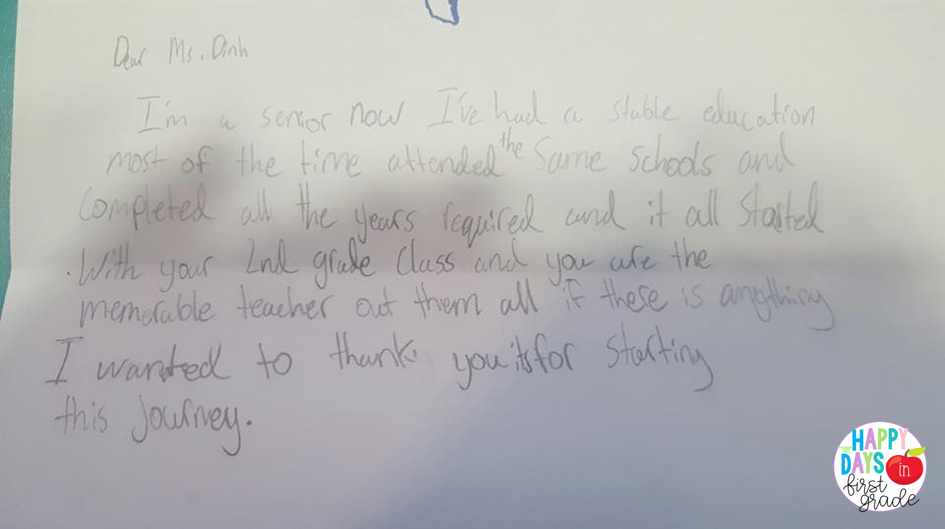 Dear Ms. Dinh
I'm a senior now I've had a stable education
most of the time attended the same schools and
completed all the years required and it all started
with your 2nd grade class and you are the
memorable teacher out them all if these is anything
I wanted to thank you its for starting
this journey.
HAPPY
DAYS
in
first
grade